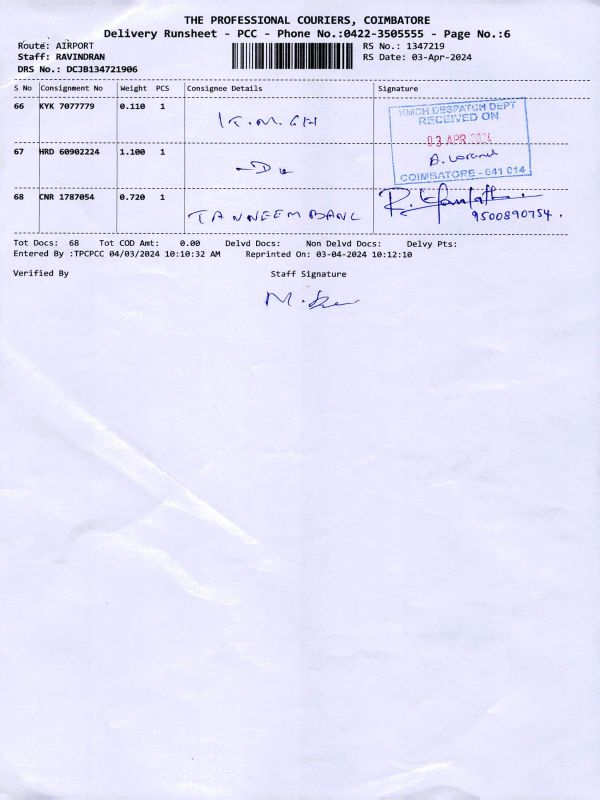 THE PROFESSIONAL COURIERS, COIMBATORE
Delivery Runsheet - PCC - Phone No.:0422-3505555 - Page No.:6
Route: AIRPORT
RS No.: 1347219
Staff: RAVINDRAN
RS Date: 03-Apr-2024
DRS No.: DCJB134721906
S No Consignment No Weight PCS Consignee Details Signature
66 KYK 7077779 0.110 1 K.M.CH
KMCH DESPATCH DEPT
RECEIVED ON
03 APR 2024
67 HRD 60902224 1.100 1
COIMBATORE - 641 014
68 CNR 1787054 0.720 1
9500890754.
Tot Docs: 68 Tot COD Amt: 0.00 Delvd Docs: Non Delvd Docs: Delvy Pts:
Entered By :TPCPCC 04/03/2024 10:10:32 AM Reprinted On: 03-04-2024 10:12:10
Verified By Staff Signature